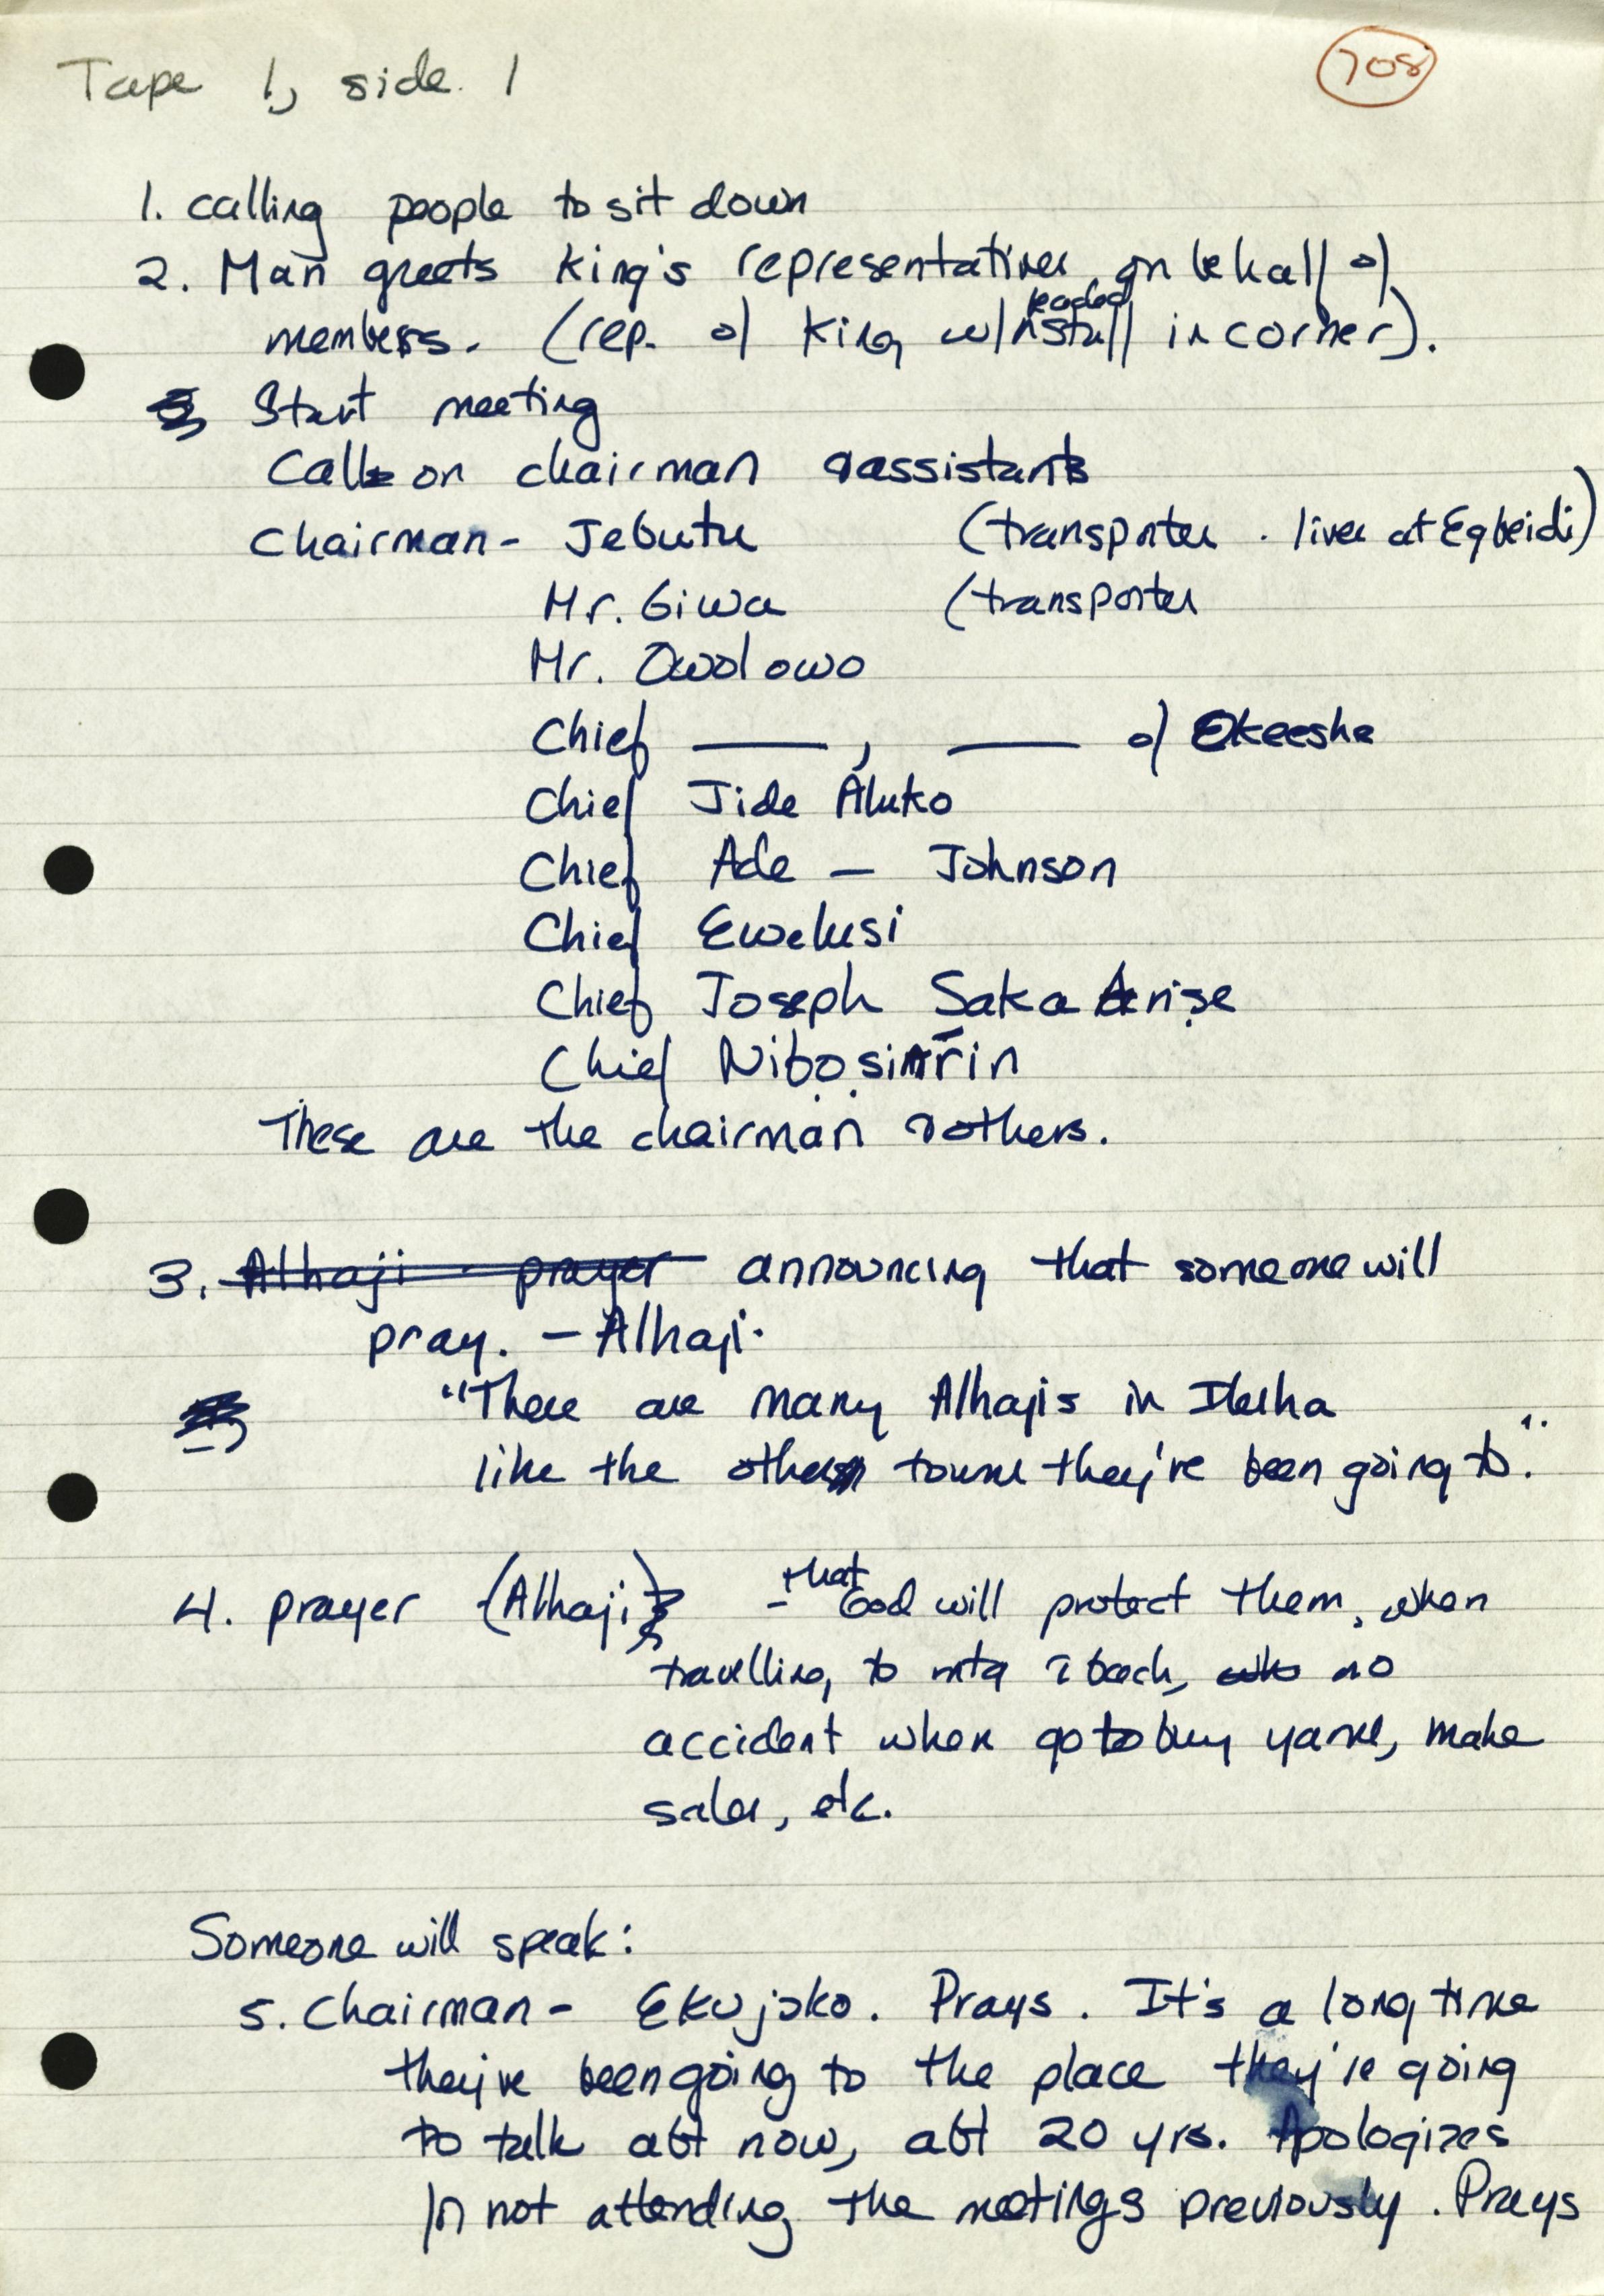 Tape 1, side 1
708
1. calling people to sit down
2. Man greets King's representatives on behalf of
members. (rep. of King w/ beaded staff in corner).
Start meeting
Calls on chairman & assistants
Chairman - Jebutu (transporter. lives at Egbeidi)
Mr. Giwa (transporter
Mr. Owolowo
Chief ——, —— of Okeesha
Chief Jide Aluko
Chief Ade — Johnson
Chief Ewelusi
Chief Joseph Saka
Chief
These are the chairman & others.
3. Alhaji - prayer announcing that someone will
pray. — Alhaji.
"There are many Alhajis in Ilesha
like the other towns they've been going to."
4. prayer (Alhaji) - that God will protect them, when
travelling to mtg & back, no
accident when go to buy yams, make
sales, etc.
Someone will speak:
5. Chairman - Ekujoko. Prays. It's a long time
they've been going to the place they're going
to talk abt now, abt 20 yrs. Apologizes
for not attending the meetings previously. Prays